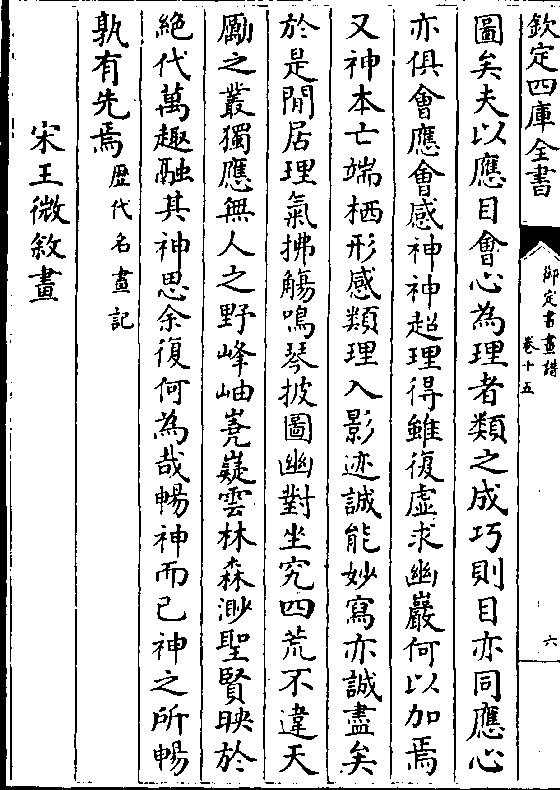 欽定四庫全書
御定書畫譜
卷十五
六
圖矣夫以應目會心為理者類之成巧則目亦同應心
亦俱會應會感神神超理得雖復虚求幽巖何以加焉
又神本亡端栖形感類理入影迹誠能妙寫亦誠盡矣
於是閒居理氣拂觴鳴琴披圖幽對坐究四荒不違天
勵之叢獨應無人之野峰岫嶤嶷雲林森渺聖賢映於
絶代萬趣融其神思余復何為哉暢神而已神之所暢
孰有先焉歴代名畫記
宋王微敘畫